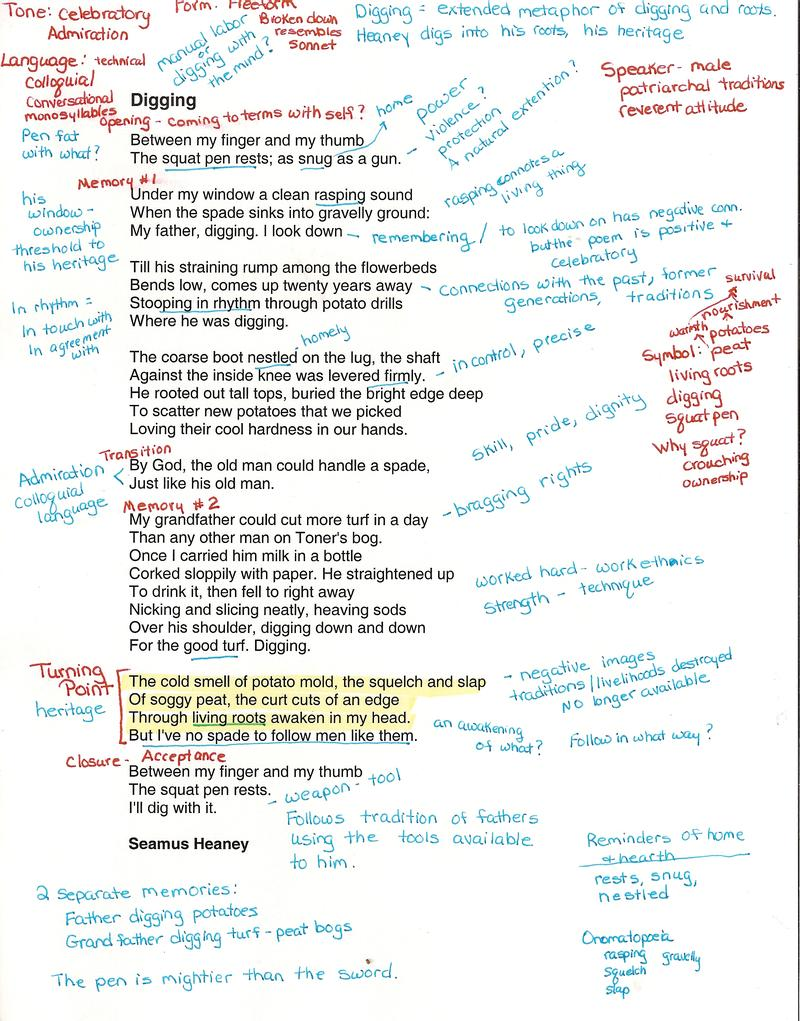 Tone: Celebratory
Admiration
Form: Freeform
Broken down
resembles
sonnet
manual labor
or
digging with
the mind?
Digging = extended metaphor of digging and roots.
Heaney digs into his roots, his heritage
Language: technical
Colloquial
Conversational
monosyllables
Speaker - male
patriarchal traditions
reverent attitude
Digging
Opening - coming to terms with self?
home
power
violence?
protection
A natural extention?
Pen fat
with what?
Between my finger and my thumb
The squat pen rests; as snug as a gun.
Memory #1
his
window -
ownership
threshold to
his heritage
Under my window a clean rasping sound
When the spade sinks into gravelly ground:
My father, digging. I look down
rasping connotes a
living thing
- remembering / to look down on has negative conn.
but the poem is positive +
celebratory
Till his straining rump among the flowerbeds
Bends low, comes up twenty years away
Stooping in rhythm through potato drills
Where he was digging.
- connections with the past, former
generations, traditions
In rhythm =
In touch with
In agreement
with
survival
nourishment
warmth potatoes
Symbol: peat
living roots
digging
squat pen
Why squat?
crouching
ownership
homely
The coarse boot nestled on the lug, the shaft
Against the inside knee was levered firmly.
He rooted out tall tops, buried the bright edge deep
To scatter new potatoes that we picked
Loving their cool hardness in our hands.
- in control, precise
Transition
Admiration
Colloquial
language
By God, the old man could handle a spade,
Just like his old man.
skill, pride, dignity
Memory #2
My grandfather could cut more turf in a day
Than any other man on Toner's bog.
Once I carried him milk in a bottle
Corked sloppily with paper. He straightened up
To drink it, then fell to right away
Nicking and slicing neatly, heaving sods
Over his shoulder, digging down and down
For the good turf. Digging.
- bragging rights
worked hard - work ethnics
Strength - technique
Turning
Point
heritage
The cold smell of potato mold, the squelch and slap
Of soggy peat, the curt cuts of an edge
Through living roots awaken in my head.
But I've no spade to follow men like them.
- negative images
traditions/livelihoods destroyed
No longer available
an awakening
of what?
Follow in what way?
Closure - Acceptance
Between my finger and my thumb
The squat pen rests.
I'll dig with it.
- weapon - tool
Follows tradition of fathers
using the tools available
to him.
Seamus Heaney
Reminders of home
+ hearth
rests, snug,
nestled
2 separate memories:
Father digging potatoes
Grand father digging turf - peat bogs
The pen is mightier than the sword.
Onomatopoeia
rasping gravelly
squelch
slap